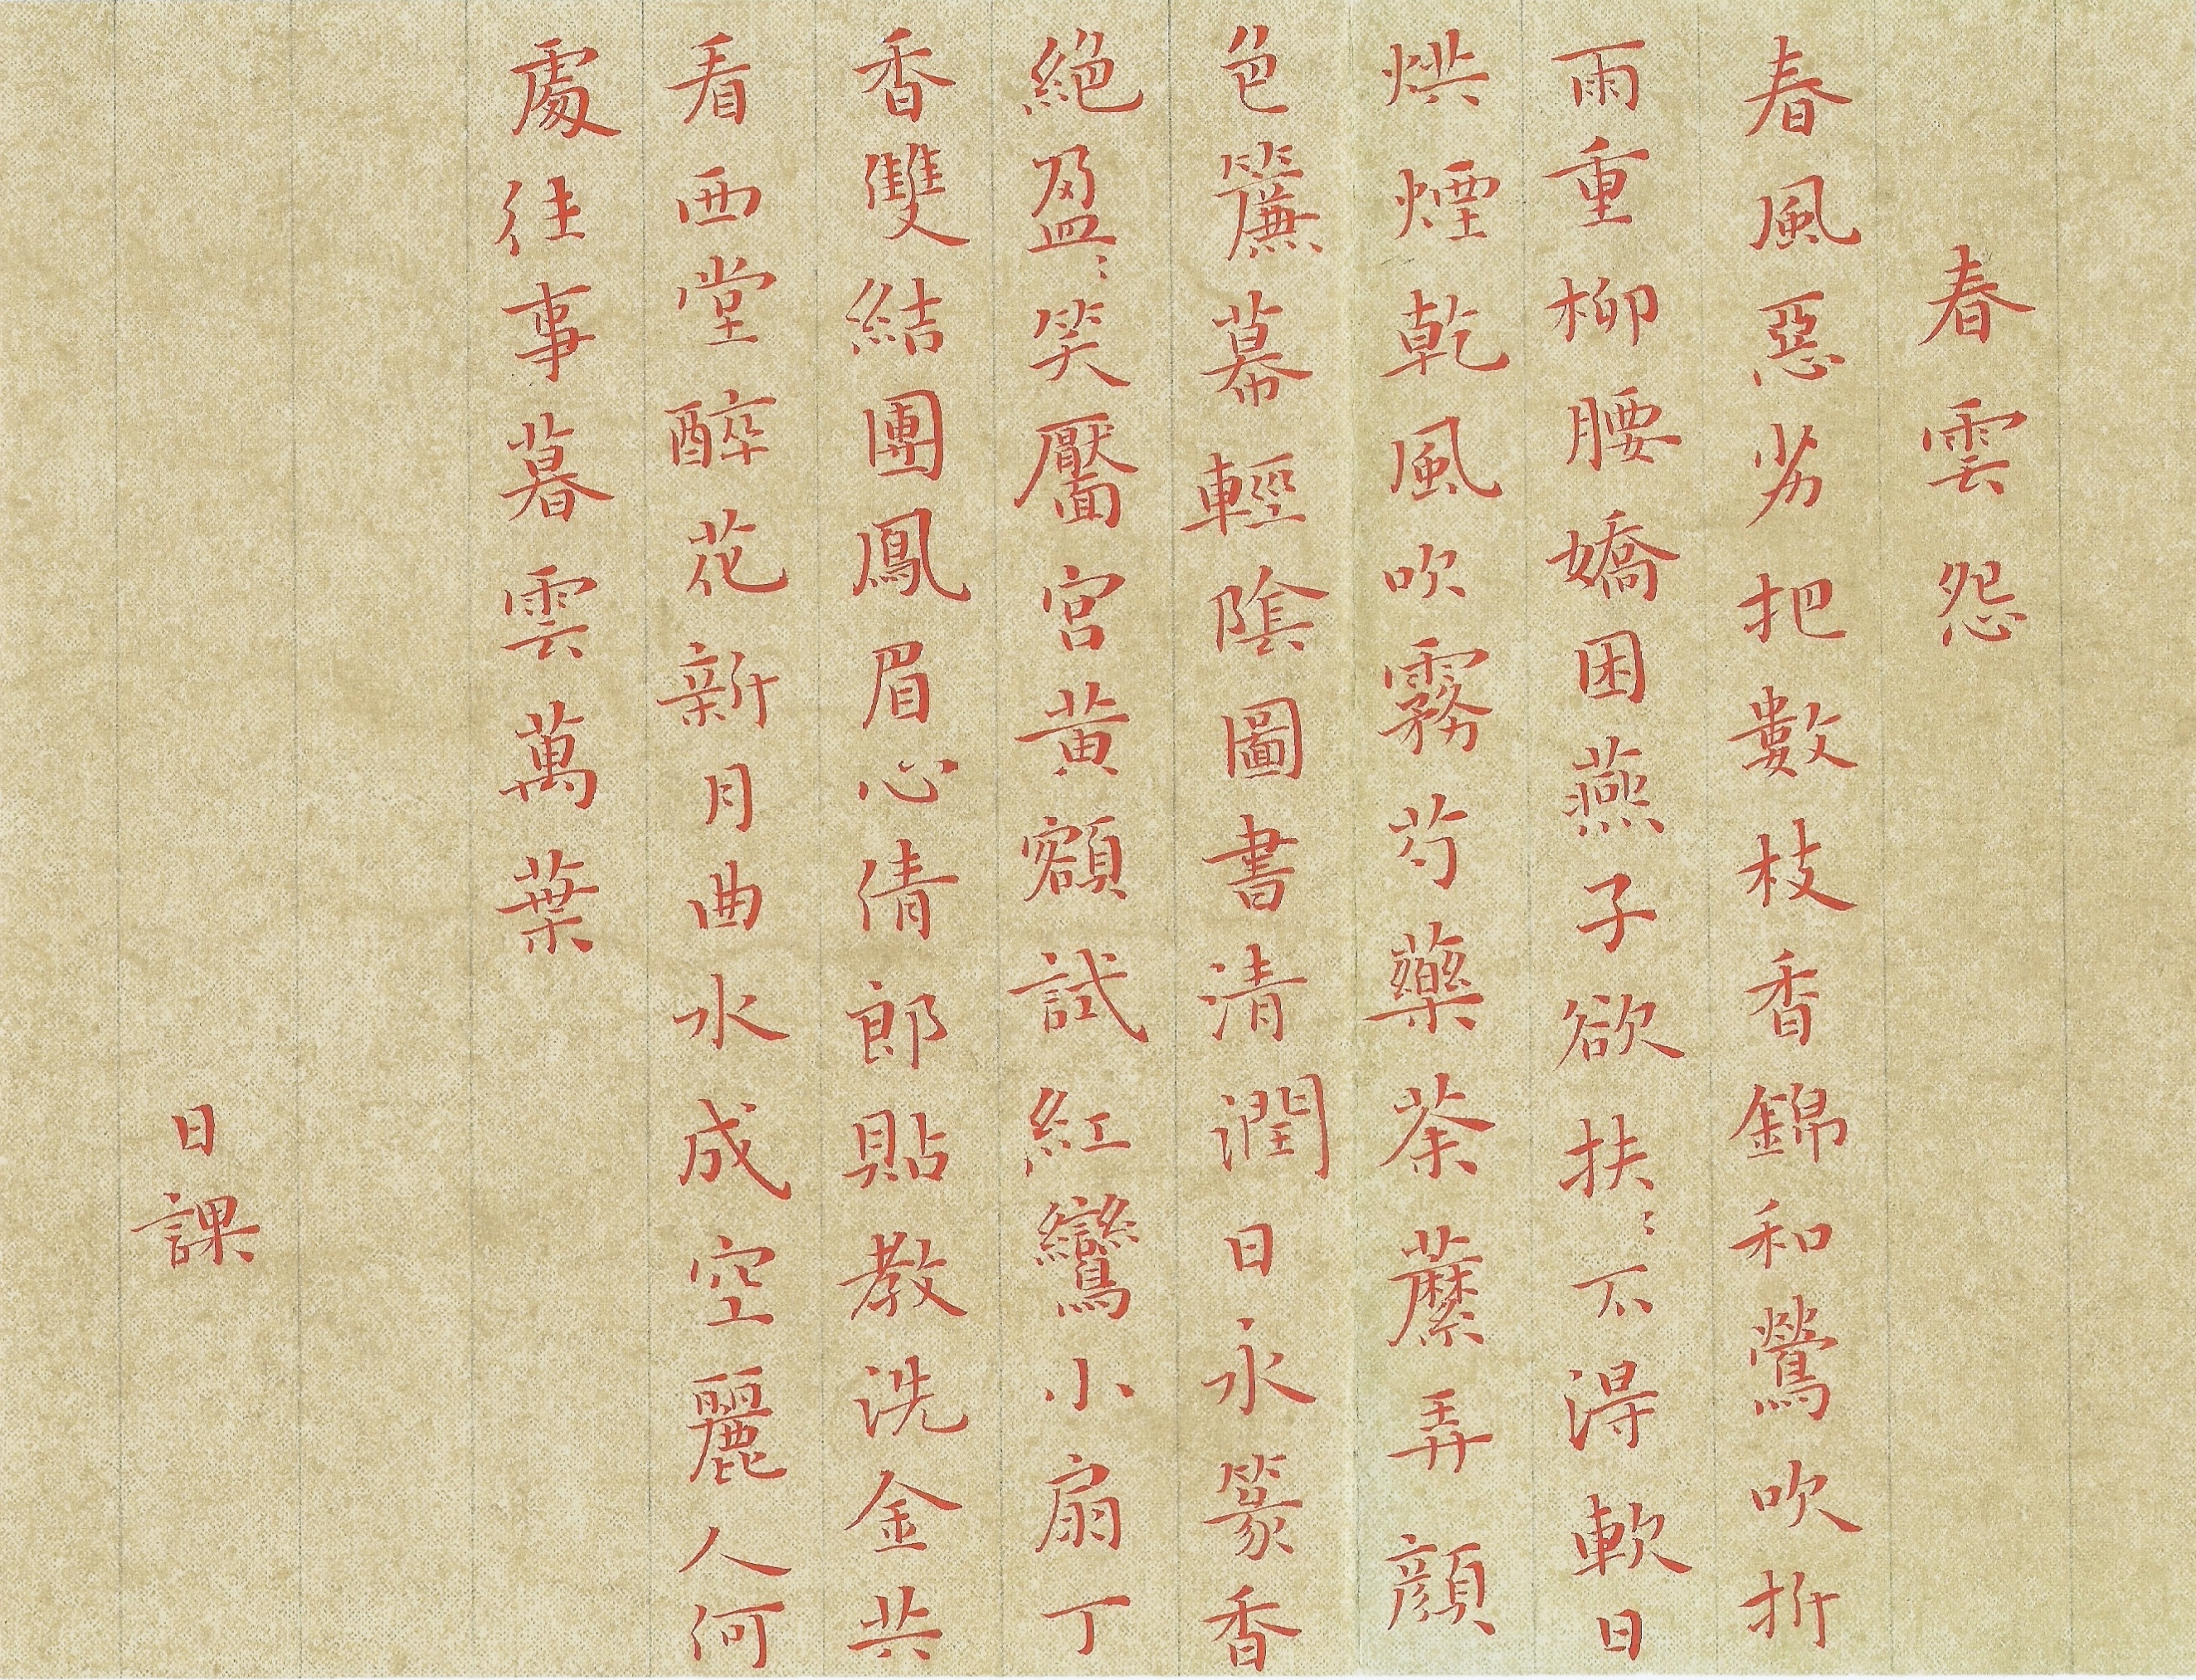 春雲怨
春風惡劣把數枝香錦和鶯吹折
雨重柳腰嬌困燕子欲扶〻不得軟日
烘煙乾風吹霧芍藥荼蘼弄顏
色簾幕輕陰圖書清潤日永篆香
絕盈〻笑靨宮黃額試紅鸞小扇丁
香雙結團鳳眉心倩郎貼教洗金共
看西堂醉花新月曲水成空麗人何
處往事暮雲萬葉
日課